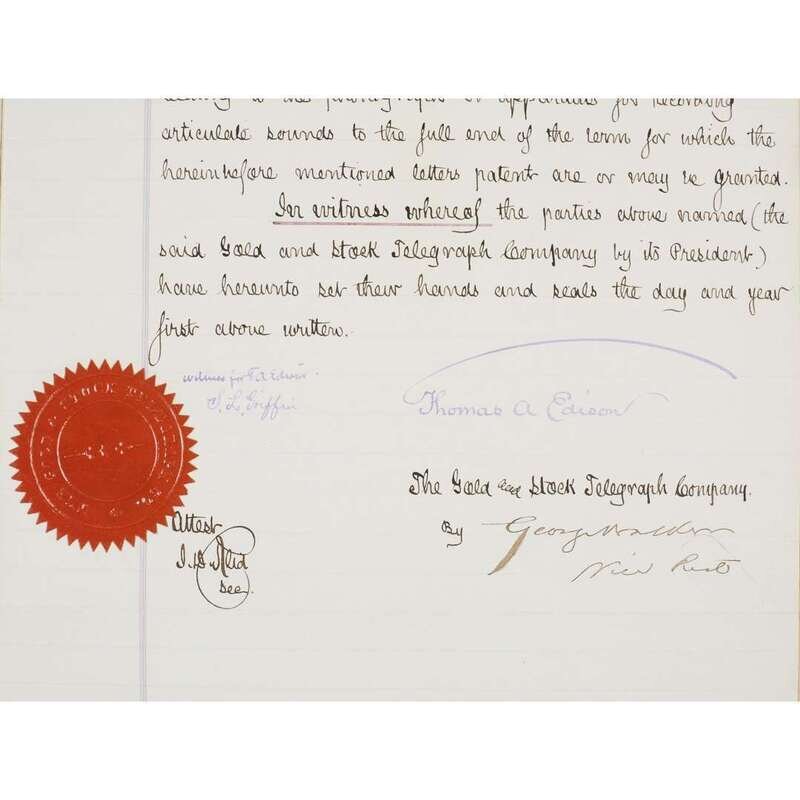 apparatus for recording
articulate sounds to the full end of the term for which the
hereinbefore mentioned letters patent are or may be granted.
In witness whereof the parties above named (the
said Gold and Stock Telegraph Company by its President)
have hereunto set their hands and seals the day and year
first above written.
witness for T. A. Edison.
S. L. Griffin
Thomas A Edison
The Gold and Stock Telegraph Company.
Attest
By George Walker
Vice Prest
J. D. Reid
Sec.